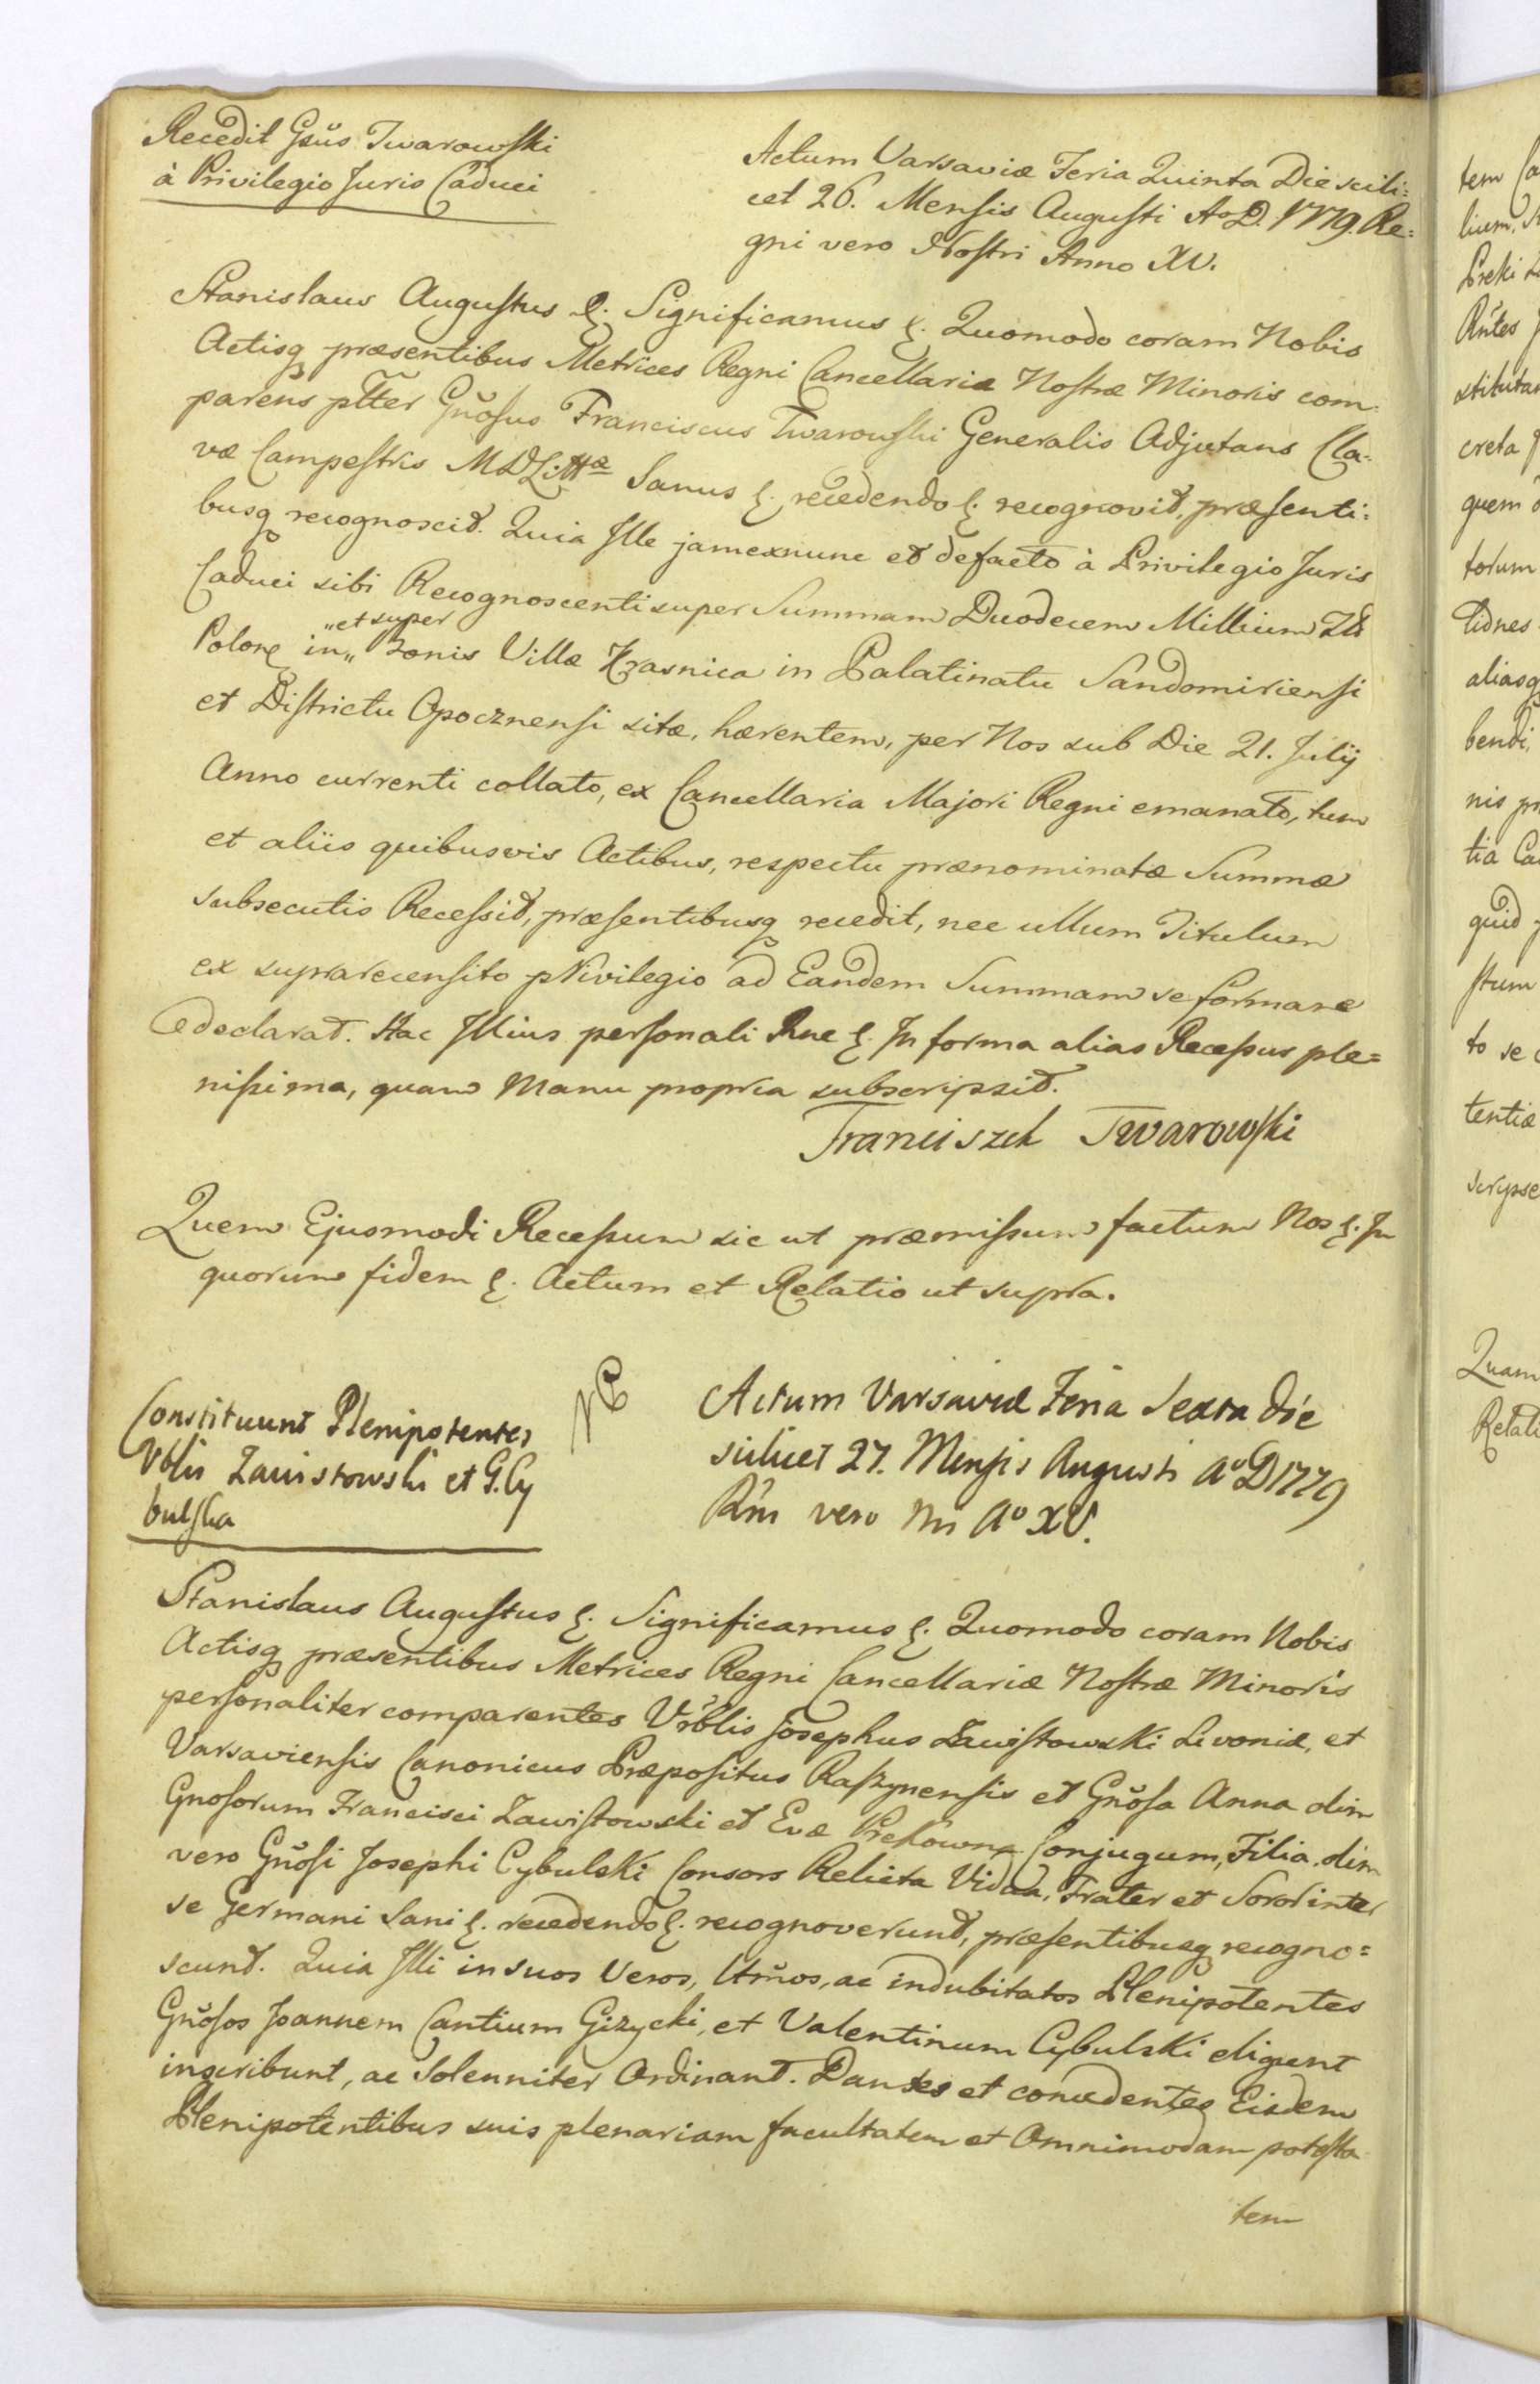 Recedit Gsus Twarowski
à Privilegio Juris Caduci
Actum Varsaviæ Feria Quinta Die scili=
cet 26. Mensis Augusti A°D. 1779. Re=
gni vero Nostri Anno XV.
Stanislaus Augustus &. Significamus &. Quomodo coram Nobis
Actisq præsentibus Metrices Regni Cancellariæ Nostræ Minoris com=
parens pltter Gnŏsus Franciscus Twarowski Generalis Adjutans Cla=
væ Campestris MDLittæ Sanus &. recedendo &. recognovit, præsenti=
busq recognoscit. Quia Ille jamexnunc et defacto à Privilegio Juris
Caduci sibi Recognoscenti super Summam Duodecem Millium Zł
Polone in „et super„ bonis Villæ Krasnica in Palatinatu Sandomiriensi
et Districtu Opocznensi sitæ, hærentem, per Nos sub Die 21. Julij
Anno currenti collato, ex Cancellaria Majori Regni emanato, tum
et aliis quibusvis Actibus, respectu prænominatæ Summæ
subsecutis Recessit, præsentibusq recedit, nec ullum Titulum
ex suprarecensito privilegio ad Eandem Summam se formare
declarat. Hac Illius personali Rne &. In forma alias Recessus ple=
nissima, quam Manu propria subscripsit.
Franciszek Twarowski
Quem Ejusmodi Recessum sic ut præmissum factum Nos &. In
quorum fidem &. Actum et Relatio ut supra.
Constituunt Plenipotentes
Vblis Zawistowski et G. Cy
bulska
Actum Varsaviæ Feria Sexta die
scilicet 27. Mensis Augusti A°D 1779
Rni vero Nri A° XV.
Stanislaus Augustus &. Significamus &. Quomodo coram Nobis
Actisq præsentibus Metrices Regni Cancellariæ Nostræ Minoris
personaliter comparentes Vrblis Josephus Zawistowski Livoniæ, et
Varsaviensis Canonicus Præpositus Raszynensis et Gnŏsa Anna olim
Gnosorum Francisci Zawistowski et Evæ Prekowne Conjugum, Filia, olim
vero Gnŏsi Josephi Cybulski Consors Relicta Vidua, Frater et Soror inter
se Germani Sani &. recedendo &. recognoverunt, præsentibusq recogno=
scunt. Quia Illi in suos Veros, Ltmos, ac indubitatos Plenipotentes
Gnŏsos Joannem Cantium Giżycki, et Valentinum Cybulski eligunt
inscribunt, ac Solenniter Ordinant. Dantes et concedentes Eisdem
Plenipotentibus suis plenariam facultatem et Omnimodam potesta
tem